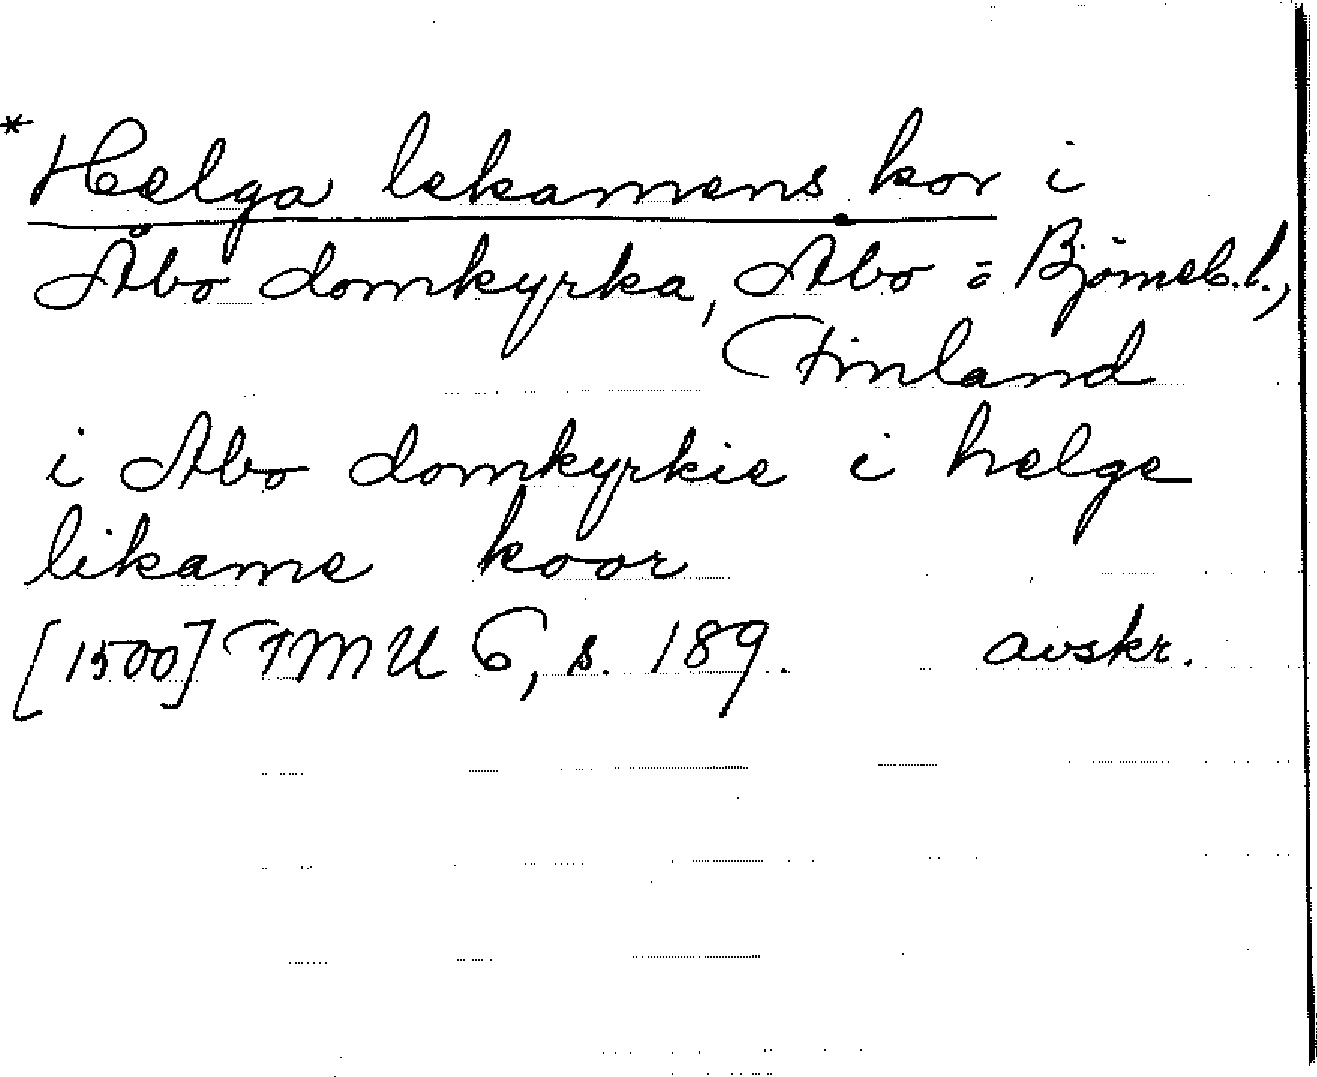 * Helga lekamens kor i
Åbo domkyrka, Åbo o Björneb. l.,
Finland
i Abo domkyrkie i helge
likame koor
[1500] FMU 6, s. 189. avskr.